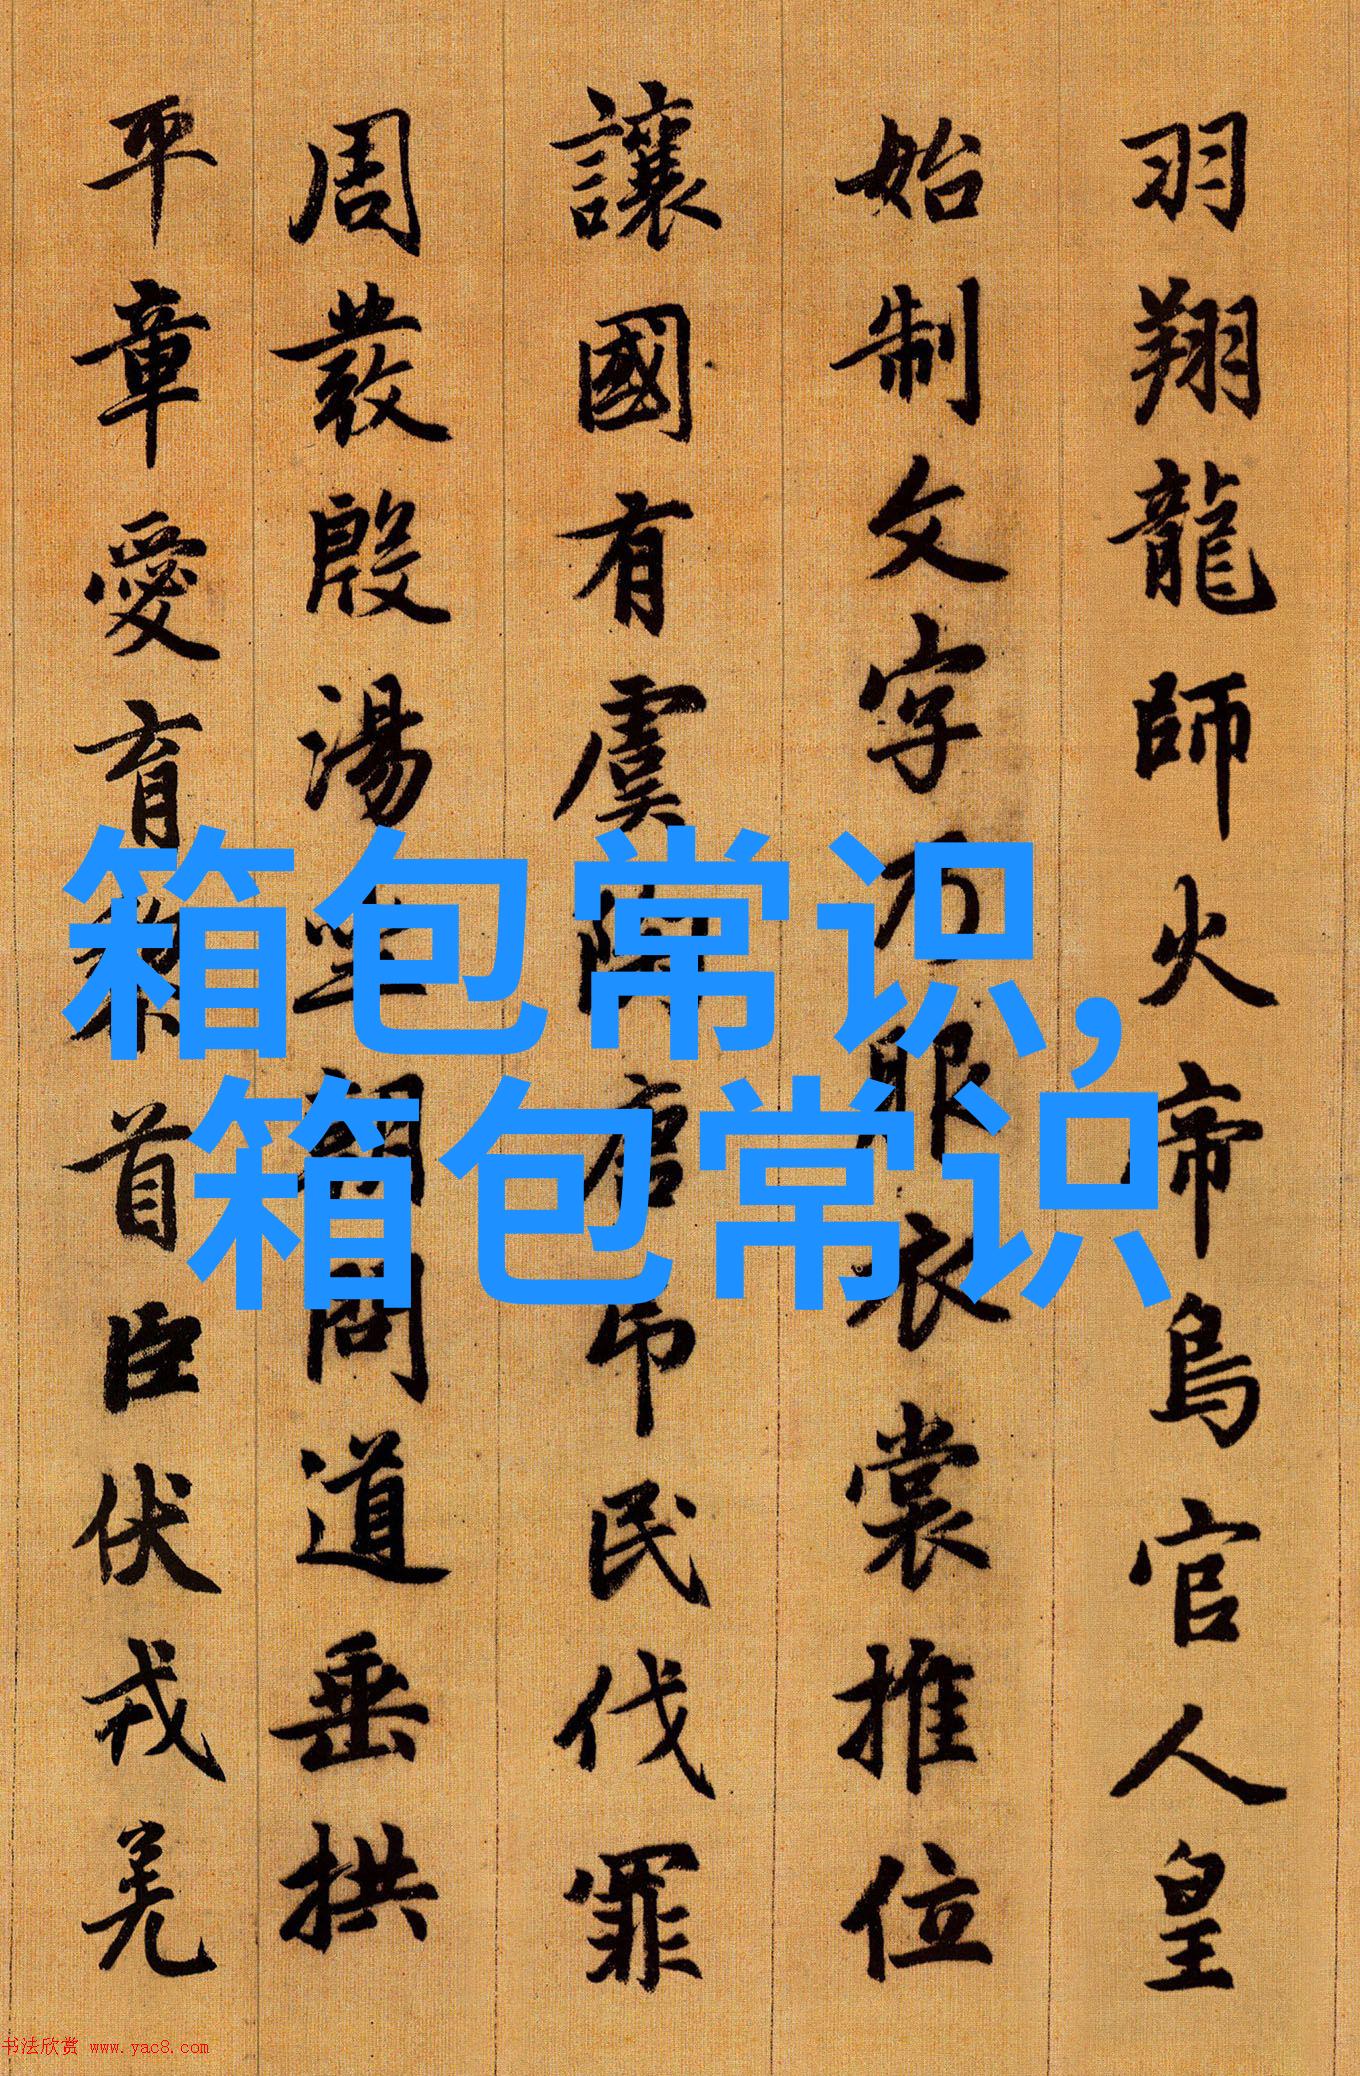 羽翔龍師火帝鳥官人皇
始制文字乃服衣裳推位
讓國有虞陶唐吊民伐罪
周發殷湯坐朝問道垂拱
平章愛育黎首臣伏戎羌
箱包常识,
箱包常识
书法欣赏 www.yac8.com